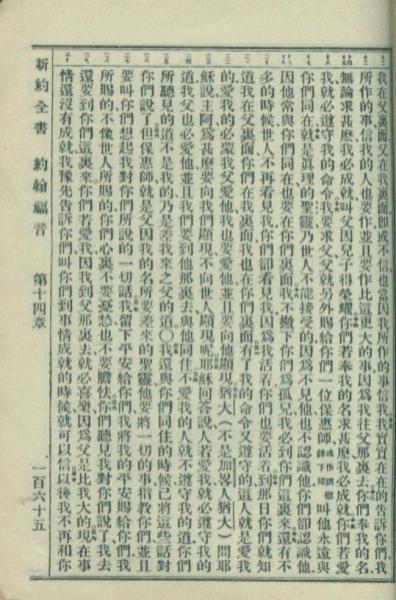 我在父裏面父在我裏面即或不信也當因我所作的事信我我實實在在的告訴你們我
所作的事信我的人也要作並且要作比這更大的事因爲我往父那裏去你們奉我的名
無論求甚麽我必成就叫父因兒子得榮耀你們若奉我的名求甚麽我必成就你們若愛
我就必遵守我的命令我要求父父就另外賜給你們一位保惠師叫他永遠與
你們同在就是眞理的聖靈乃世人不能接受的因爲不見他也不認識他你們卻認識他
因他常與你們同在也要在你們裏面我不撇下你們爲孤兒我必到你們這裏來還有不
多的時候世人不再看見我你們卻看見我因爲我活着你們也要活着到那日你們就知
道我在父裏面你們在我裏面我也在你們裏面有了我的命令又遵守的這人就是愛我
的愛我的必蒙我父愛他我也要愛他並且要向他顯現猶大（不是加畧人猶大）問耶
穌說主阿爲甚麽要向我們顯現不向世人顯現呢耶穌回答說人若愛我就必遵守我的
道我父也必愛他並且我們要到他那裏去與他同住不愛我的人就不遵守我的道你們
所聽見的道不是我的乃是差我來之父的道〇我還與你們同住的時候已將這些話對
你們說了但保惠師就是父因我的名所要差來的聖靈他要將一切的事指敎你們並且
要叫你們想起我對你們所說的一切話我留下平安給你們我將我的平安賜給你們我
所賜的不像世人所賜的你們心裏不要憂愁也不要膽怯你們聽見我對你們說了我去
還要到你們這裏來你們若愛我因我到父那裏去就必喜樂因爲父是比我大的現在事
情還沒有成就我豫先告訴你們叫你們到事情成就的時候就可以信以後我不再和你
新約全書　約翰福音　第十四章　一百六十五